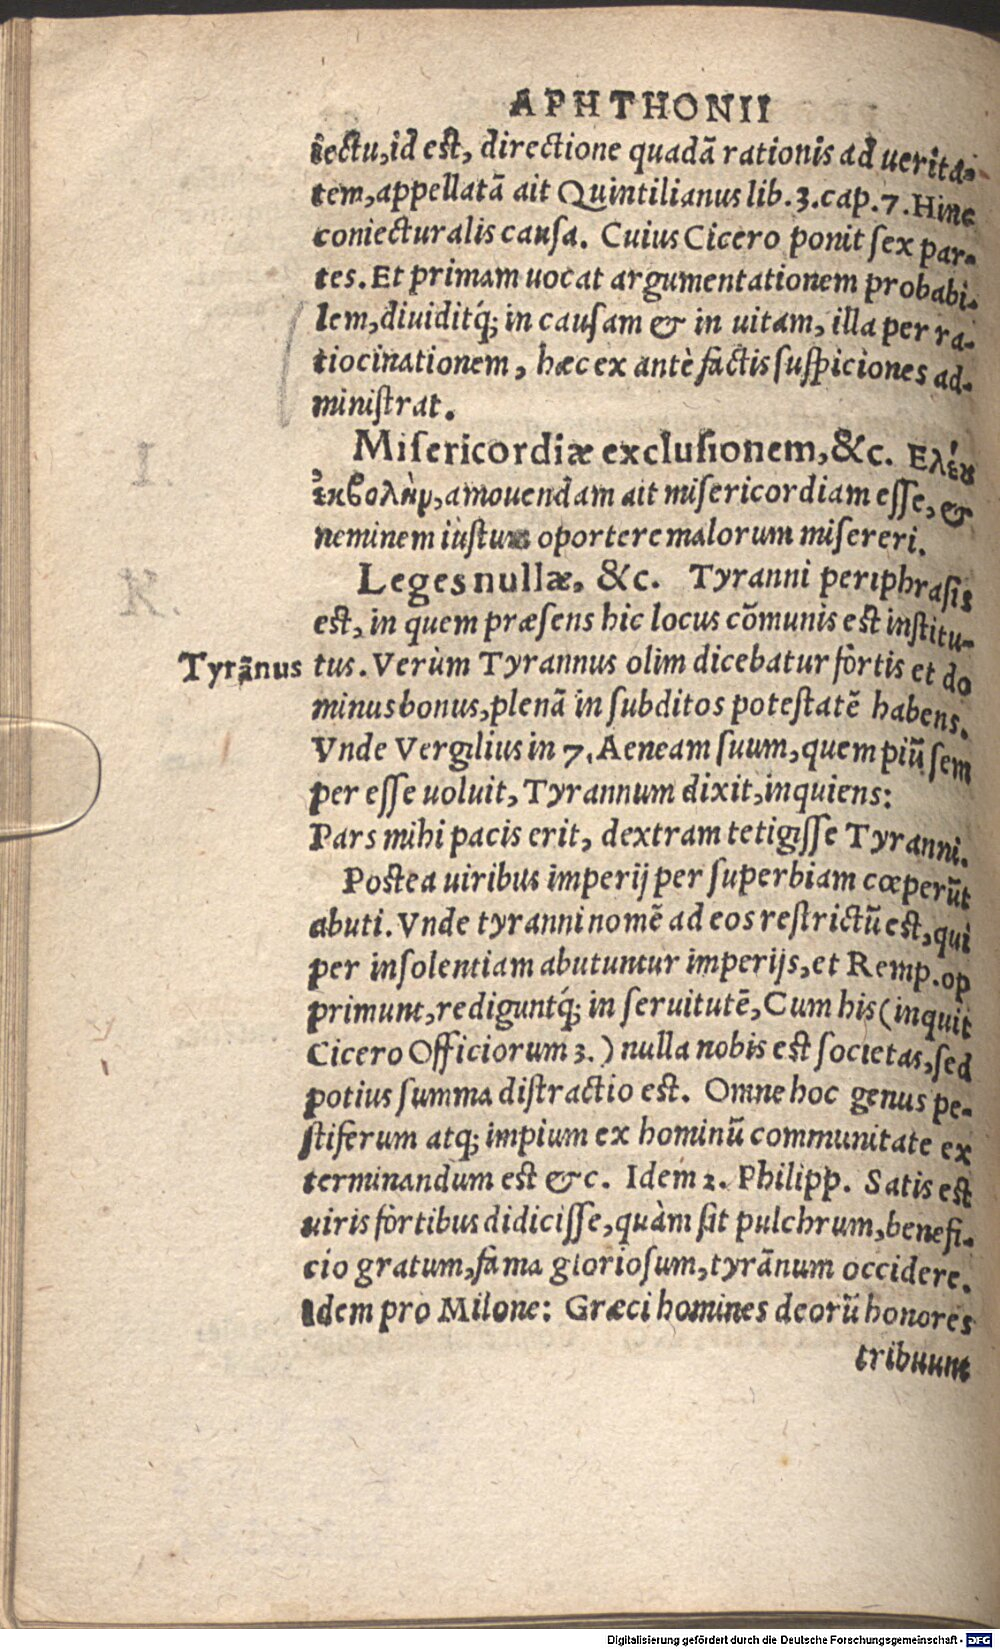 APHTHONII
iectu, id est, directione quadã rationis ad uerita-
tem, appellatã ait Quintilianus lib. 3. cap. 7. Hinc
coniecturalis causa. Cuius Cicero ponit sex par-
tes. Et primam uocat argumentationem probabi-
lem, diuiditq́; in causam & in uitam, illa per ra-
tiocinationem, hæc ex antè factis suspiciones ad-
ministrat.
I.
Misericordiæ exclusionem, &c. Ελέου
ἐκβολὴν, amouendam ait misericordiam esse, &
neminem iustum oportere malorum misereri.
K.
Leges nullæ, &c. Tyranni periphrasis
est, in quem præsens hic locus cõmunis est institu-
Tyrãnus tus. Verùm Tyrannus olim dicebatur fòrtis et do
minus bonus, plenã in subditos potestatẽ habens.
Vnde Vergilius in 7. Aeneam suum, quem piũ sem
per esse uoluit, Tyrannum dixit, inquiens:
Pars mihi pacis erit, dextram tetigisse Tyranni.
Postea uiribus imperij per superbiam cœperũt
abuti. Vnde tyranni nomẽ ad eos restrictũ est, qui
per insolentiam abutuntur imperijs, et Remp. op
primunt, rediguntq́; in seruitutẽ, Cum his (inquit
Cicero Officiorum 3.) nulla nobis est societas, sed
potius summa distractio est. Omne hoc genus pe-
stiferum atq; impium ex hominũ communitate ex
terminandum est &c. Idem 2. Philipp. Satis est
uiris fòrtibus didicisse, quàm sit pulchrum, benefi-
cio gratum, fama gloriosum, tyrãnum occidere.
Idem pro Milone: Græci homines deorũ honores
tribuunt
Digitalisierung gefördert durch die Deutsche Forschungsgemeinschaft - DFG